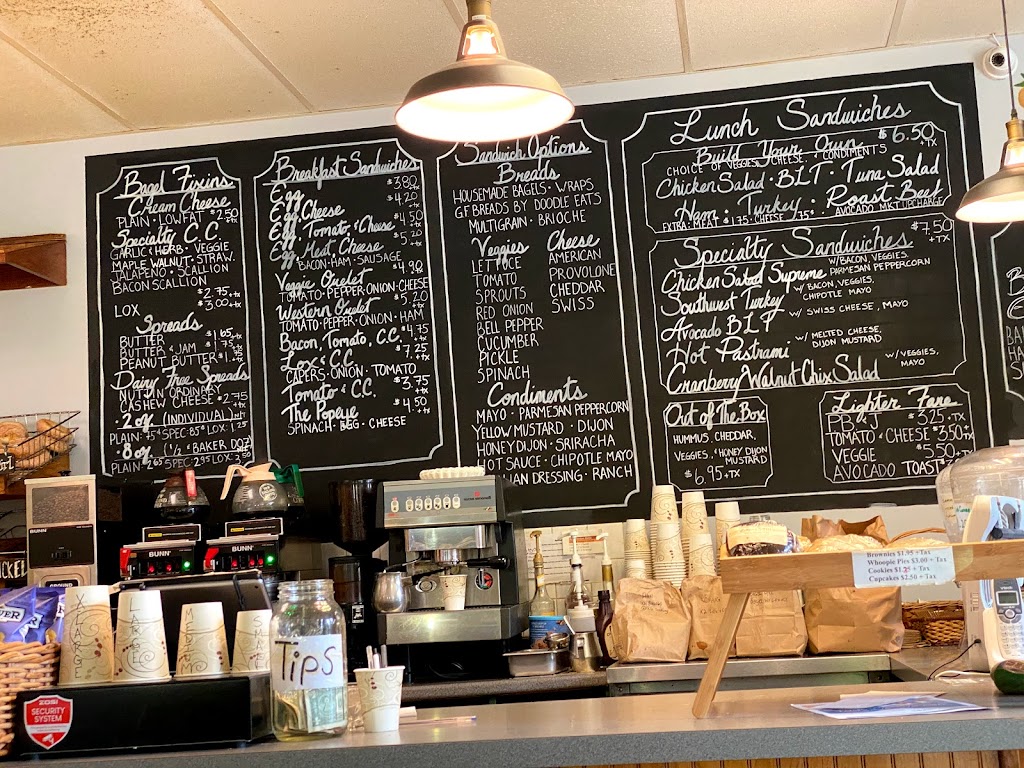 Bagel Fixins
Cream Cheese
PLAIN · LOWFAT $2.50 +tx
Specialty C.C.
GARLIC & HERB · VEGGIE
MAPLE WALNUT · STRAW.
JALAPENO · SCALLION
BACON SCALLION
$2.75 +tx
LOX $3.00 +tx
Spreads
BUTTER $1.65 +tx
BUTTER & JAM $1.75 +tx
PEANUT BUTTER $1.75
Dairy Free Spreads
NUTTIN ORDINARY
CASHEW CHEESE $2.75 +tx
· 2 oz. (INDIVIDUAL)
PLAIN· 75¢ SPEC· 85¢ LOX· 1.25
· 8 oz. (1/2 & BAKER DOZ)
PLAIN $2.65 SPEC· 2.95 LOX· 3.50
Breakfast Sandwiches
Egg $3.80 +tx
Egg, Cheese $4.20 +tx
Egg, Tomato, & Cheese $4.50 +tx
Egg, Meat, Cheese $5.20 +tx
BACON · HAM · SAUSAGE
Veggie Omelet $4.90 +tx
TOMATO · PEPPER · ONION · CHEESE
Western Omelet $5.20 +tx
TOMATO · PEPPER · ONION · HAM
Bacon, Tomato, C.C. $4.75 +tx
Lox & C.C. $7.25 +tx
CAPERS · ONION · TOMATO
Tomato & C.C. $3.75 +tx
The Popeye $4.50 +tx
SPINACH · EGG · CHEESE
Sandwich Options
Breads
HOUSEMADE BAGELS · WRAPS
GF BREADS BY DOODLE EATS
MULTIGRAIN · BRIOCHE
Veggies
LETTUCE
TOMATO
SPROUTS
RED ONION
BELL PEPPER
CUCUMBER
PICKLE
SPINACH
Cheese
AMERICAN
PROVOLONE
CHEDDAR
SWISS
Condiments
MAYO · PARMESAN PEPPERCORN
YELLOW MUSTARD · DIJON
HONEY DIJON · SRIRACHA
HOT SAUCE · CHIPOTLE MAYO
DRESSING · RANCH
Lunch Sandwiches
Build Your Own $6.50 +TX
CHOICE OF VEGGIES, CHEESE, & CONDIMENTS
Chicken Salad · BLT · Tuna Salad
Ham · Turkey · Roast Beef
EXTRA: MEAT $1.75 · CHEESE .75¢ AVOCADO MKT UPCHARGE
Specialty Sandwiches $7.50 +TX
Chicken Salad Supreme W/BACON, VEGGIES, PARMESAN PEPPERCORN
Southwest Turkey W/ BACON, VEGGIES, CHIPOTLE MAYO
Avocado BLT W/ SWISS CHEESE, MAYO
Hot Pastrami W/ MELTED CHEESE, DIJON MUSTARD
Cranberry Walnut Chix Salad W/ VEGGIES, MAYO
Out of The Box
HUMMUS, CHEDDAR,
VEGGIES, & HONEY DIJON
MUSTARD
$6.95 +TX
Lighter Fare
PB & J $3.25 +TX
TOMATO & CHEESE $3.50 +tx
VEGGIE $5.50 +TX
AVOCADO TOAST
Brownies $1.95 +Tax
Whoopie Pies $3.00 + Tax
Cookies $1.25 + Tax
Cupcakes $2.50 + Tax
BUNN
BUNN
BUNN
GROUND
X-LARGE
LARGE
MEDIUM
SMALL
TIPS
ZOSI
SECURITY
SYSTEM